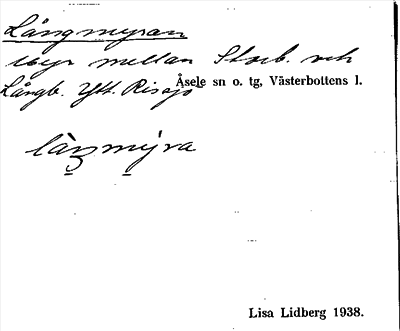 Långmyran
myr mellan Storb. och
Långb. Ytt. Rissjö
Åsele sn o. tg, Västerbottens l.
làŋmy̌ra
Lisa Lidberg 1938.